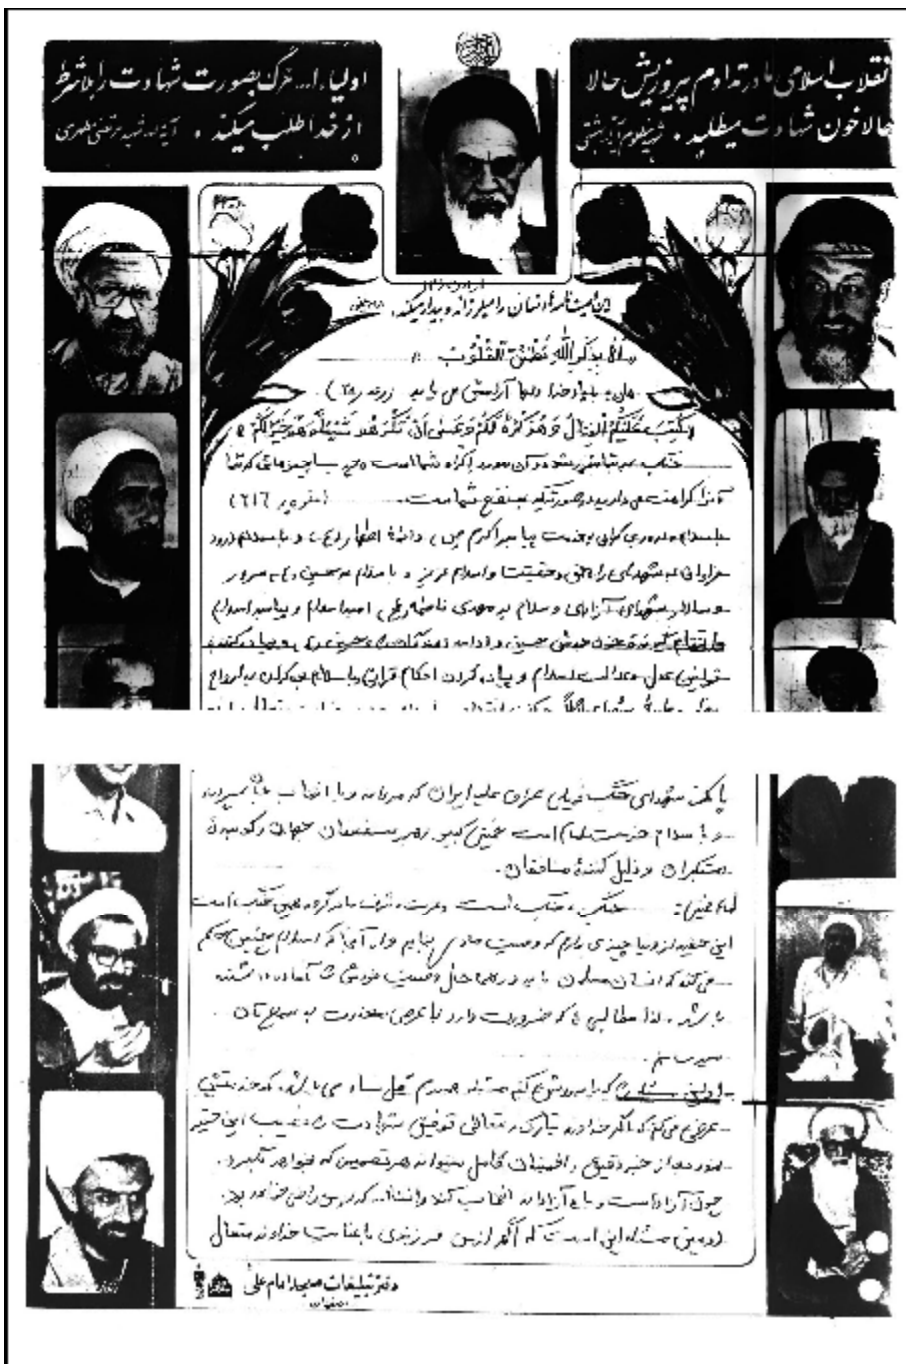 انقلاب اسلامی ما در تداوم پیروزیش حالا
حالا خون شهادت میطلبد . شهید مظلوم آیة‌ا... بهشتی
اولیاء ا... مرگ بصورت شهادت را بلاشرط
از خدا طلب میکند . آیة‌اله شهید مرتضی مطهری
این وصیت نامه‌ها انسان را میلرزاند و بیدار میکند .
«الا بذکر الله تطمئن القلوب»
هان به یاد خدا دلها آرامش می یابد (رعد ۲۸)
«کتب علیکم القتال و هو کره لکم و عسی ان تکرهوا شیئا و هو خیر لکم»
جنگ بر شما مقرر شد و آن مورد اکراه شماست و چه بسا چیزهائی که شما
آنرا کراهت می دارید در صورتیکه به نفع شماست (بقره ۲۱۶)
با سلام و درود گرامی بخدمت پیامبر اکرم (ص) و ائمهٔ اطهار (ع) و با سلام و درود
فراوان به شهدای راه حق و حقیقت و اسلام عزیز و با سلام بر حسین (ع) سرور
و سالار شهدای آزادی و سلام بر مهدی فاطمه (عج) امید اسلام و پیامبر اسلام
قوانین عدل و عدالت اسلام و پیاده کردن احکام قرآن با سلام بی کران به ارواح
پاک شهدای جنگ تحمیلی عراق علیه ایران که
و با سلام خدمت امام امت خمینی کبیر رهبر مستضعفان جهان و کوبندهٔ
مستکبران و ذلیل کنندهٔ منافقان .
امام خمینی: جنگ ، جنگ است و عزت و شرف ما در گرو همین جنگ است
این حقیر از دنیا چیزی ندارم که وصیت مادی بنمایم و از آنجا که اسلام چنین حکم
می کند که انسان مسلمان باید در همه حال وصیت خودش را آماده داشته
باشد ، لذا مطالبی را که ضرورت دارد با عرض معذرت به سمع تان
میرسانم .
اولین مسئله
عرض می کنم که اگر خداوند تبارک و تعالی توفیق شهادت را نصیب این حقیر
نمود بعد از خبر دقیق و اطمینان کامل میتواند هر تصمیمی که خواهد بگیرد .
چون آزاد است و باید آزادانه انتخاب کند و انشاء‌ا... که
دومین مسئله این است که اگر از من فرزندی با عنایت خداوند متعال
دفتر تبلیغات مسجد امام علی
اصفهان